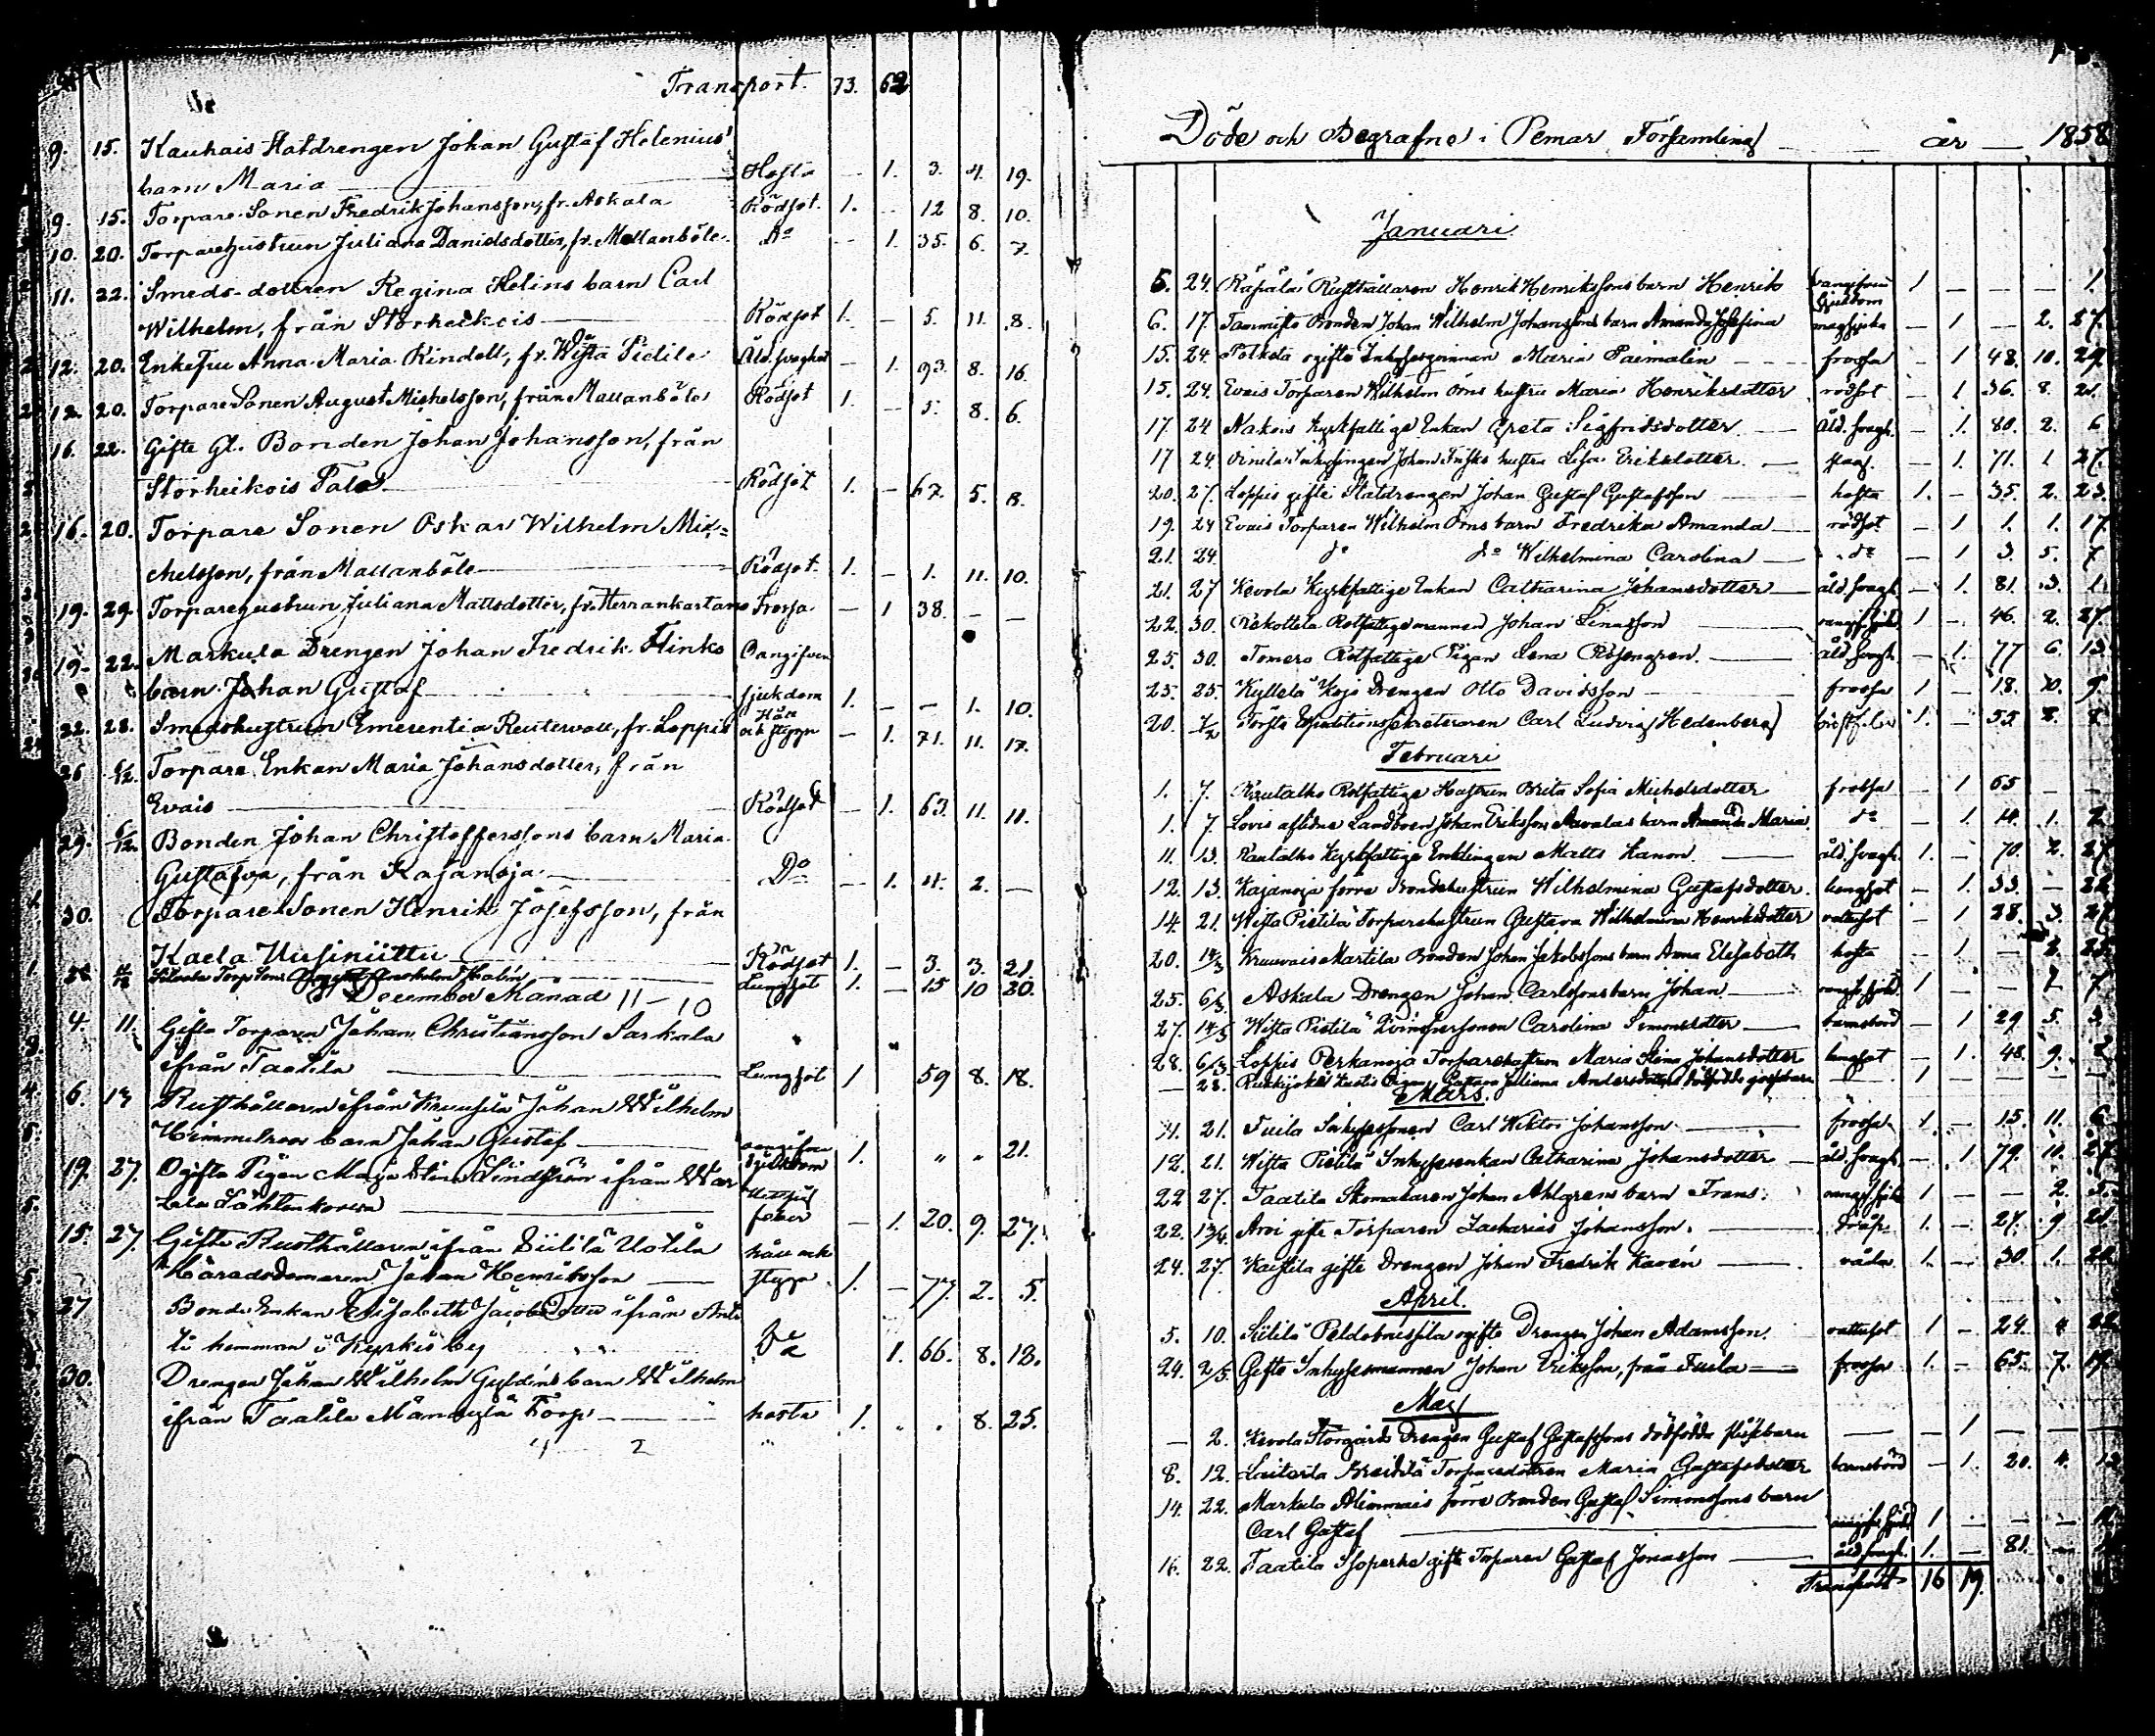 Transport. 73. 62
9. 15. Kauhais Statdrengen Johan Gustaf Helenius'
barn Maria Hosta — 1. 3. 4. 19.
9. 15. Torpare Sonen Fredrik Johansson, fr. Askala Rödsot. 1. — 12 8. 10.
10. 20. Torparehustrun Juliana Danielsdotter, fr. Mellanböle Do — 1. 35. 6. 7.
11. 22. Smeds-dottren Regina Helins barn Carl
Wilhelm, från Storheikois Rödsot 1. — 5. 11. 8.
12. 20. Enkefru Anna Maria Rindell, fr. Wista Pietilä Åld. svaghet — 1. 93. 8. 16.
12. 20. Torpare Sonen August Michelsson, från Mallanböle Rödsot 1. — 5. 8. 6.
16. 22. Gifte Gl. Bonden Johan Johansson, från
Storheikois Talo Rödsot 1. — 67. 5. 8.
16. 20. Torpare Sonen Oskar Wilhelm Mi-
chelsson, från Mallanböle Rödsot. 1. — 1. 11. 10.
19. 29. Torparehustrun Juliana Mattsdotter, fr. Herrankartano Frossa — 1 38. — —
19. 22. Markula Drengen Johan Fredrik Flinks Oangifven
barn Johan Gustaf sjukdom 1. — — 1. 10.
22. 28. Smedshustrun Emerentia Reutervall, fr. Loppis Håll och styng — 1. 71. 11. 17.
26 6/12. Torpare Enkan Maria Johansdotter, från
Evais Rödsot — 1. 63. 11. 11.
29. 6/12. Bonden Johan Christofferssons barn Maria
Gustafva, från Kajanoja Do — 1. 4. 2. —
30. Torpare Sonen Henrik Josefsson, från
Kaela Uusiniittu Rödsot 1. — 3. 3. 21.
Torp Sons Lungsot 1. — 15 10 20.
December Månad 11-10
4. 11. Gifte Torparen Johan Christiansson Sarkala
ifrån Taatila Lungsot 1 59 8. 18.
6. 13 Rusthållaren ifrån Kruusila Johan Wilhelm
Himmelroos barn Johan Gustaf oangifven Sjukdom 1. " " 21.
19. 27. Ogifta Pigan Maja Stina Lindström ifrån War
feber — 1. 20. 9. 27.
15. 27. Gifte Rusthållaren ifrån Siililä Uotila håll och
Häradsdomaren Johan Henriksson styng. 1. — 77. 2. 5.
27 Bonde Enkan Elisabeth Jacobsdotter ifrån Ant
hemman i Kyrkis by Do 1. 66. 8. 13.
30. Drengen Johan Wilhelm Gyldéns barn Wilhelm
ifrån Taatila Torp hosta 1. . . 8. 25.
4 2
Döde och Begrafne i Pemar Församling år 1858
Januari
5. 24. Räpälä Rusthållaren Henrik Henrikssons barn Henrik oangifven sjukdom 1 — — — 1.
6. 17. Tammisto Bonden Johan Wilhelm Johanssons barn Amanda Josefina magsjuka — 1 — 2. 27.
15. 24 ogifta Inhyseqvinnan Maria Paimalin frossa — 1 48. 10. 29.
15. 24. Evais Torparen Wilhelm Örns hustru Maria Henriksdotter rödsot — 1 36. 8. 21.
17. 24 Nakois Kyrkfattige Enkan Greta Sigfridsdotter Åld. svagh. — 1. 80. 2. 6
17 24. Inhysingen Johan hustru Lisa Eriksdotter — 1. 71. 1 27.
20. 27. Loppis gifte Statdrengen Johan Gustaf Gustafsson hosta 1. — 35. 2. 23.
19. 24 Evais Torparen Wilhelm Örns barn Fredrika Amanda rödsot — 1 1. 1. 17.
21. 24. do do Wilhelmina Carolina do — 1 3. 5. 7
21. 27 Kevola Kyrkfattige Enkan Catharina Johansdotter åld. svagh. — 1. 81. 3. 1
22. 30. Rekottila Rotfattigemannen Johan Linasson oangif. sjuk. 1 — 46. 2. 27.
25. 30. Tomero Rotfattige Pigan Lena Rosengren. åld. svagh. — 1. 77 6. 13
25. 25. Kyllelä Kojo Drengen Otto Davidsson frossa 1 — 18. 10. 9.
20. 7/2 Förste Expeditionssekreteraren Carl Ludvig Hedenberg bröstfeber 1. — 55. 8. 8
Februari
1. 7. Rautalho Rotfattige Hustrun Brita Sofia Michelsdotter frossa — 1 65 — —
1. 7. Lovis aflidne Landboen Johan Eriksson Aavalas barn Amanda Maria do — 1. 14. 1. 2
11. 13. Rautalho Kyrkfattige Enklingen Matts Kanon. åld. svagh. 1. — 70. 2. 27
12. 13. Kajanoja förre Bondehustrun Wilhelmina Gustafsdotter. lungsot — 1. 33. — 22
14. 21. Wista Pietilä Torparehustrun Gustava Wilhelmina Henriksdotter vattusot — 1 28. 3. 27.
20. 14/3 Kruuvais Martila Bonden Johan Jakobssons barn Anna Elisabeth hosta — 1 — 2. 25.
25. 6/3 Askala Drengen Johan Carlssons barn Johan oangif. sjukd. 1 — — 7
27. 14/3 Wista Pietilä Qvinspersonen Carolina Simonsdotter barnsbörd — 1 29 5. 3.
28. 6/3 Loppis Perkanoja Torparehustrun Maria Stina Johansdotter lungsot — 1. 48. 9. 2
— 28. Pigan Gustava Juliana Andersdotters dödfödda gossebarn — 1 — — — —
Mars.
11. 21. Fuila Inhysessonen Carl Wiktor Johansson frossa 1. — 15. 11. 6
12. 21. Wista Pietilä Inhysesenkan Catharina Johansdotter åld. svagh. — 1 79. 10. 27
22 27. Taatila Skomakaren Johan Ahlgrens barn Frans. oangif. sjuk. 1 — — 2. 5.
22. 13/4. Arvi gifte Torparen Zacharias Johansson. dråp. 1. — 27. 9 21
24. 27. Kaistila gifte Drengen Johan Fredrik Kavén våda 1. — 30. 1. 21
April.
5. 10. Siililä ogifte Drengen Johan Adamsson. vattusot 1 — 24. 4 22
24. 2/5. Gifte Inhysesmannen Johan Eriksson, från Fuila frossa 1. — 65. 7. 19
Maj
— 2. Kevola Storgårds Drengen Gustaf Gustafssons dödfödda flickebarn — — 1 — — —
8. 12. Torparedottren Maria Gustafsdotter barnsbörd — 1. 20. 4. 13
14. 22. Markula Alimmais förre Bonden Gustaf Simonssons barn
Carl Gustaf oangif. sjukd 1 — — —
16. 22. Taatila gifte Torparen Gustaf Jonasson åld. svagh. 1. — 81. —
Transport 16 19.